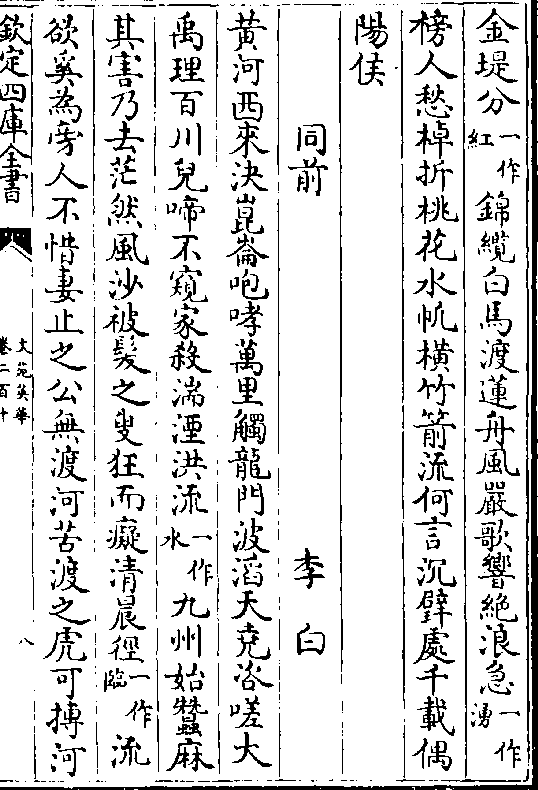 金堤分一作紅錦纜白馬渡蓮舟風嚴歌響絶浪急一作湧
榜人愁棹折桃花水帆橫竹箭流何言沉璧處千載偶
陽侯
同前 李白
黄河西來決崑崙咆哮萬里觸龍門波滔天堯咨嗟大
禹理百川兒啼不窺家殺湍湮洪流一作水九州始蠶麻
其害乃去茫然風沙被髮之叟狂而癡清晨徑一作臨流
欲奚為旁人不惜妻止之公無渡河苦渡之虎可搏河
欽定四庫全書
文苑英華
卷二百十
八